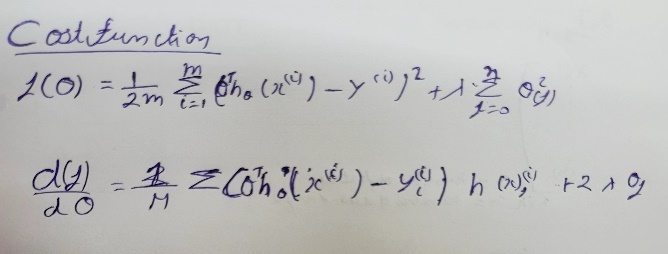 Cost function
J(θ) = 1/2m Σ_{i=1}^{m} (θᵀh_θ(x^{(i)}) - y^{(i)})² + λ Σ_{j=0}^{n} θ²_{(j)}
d(J)/dθ = 1/M Σ (θᵀh_θ(x^{(i)}) - y_i^{(i)}) h(x)^{(i)} + 2λθ_j